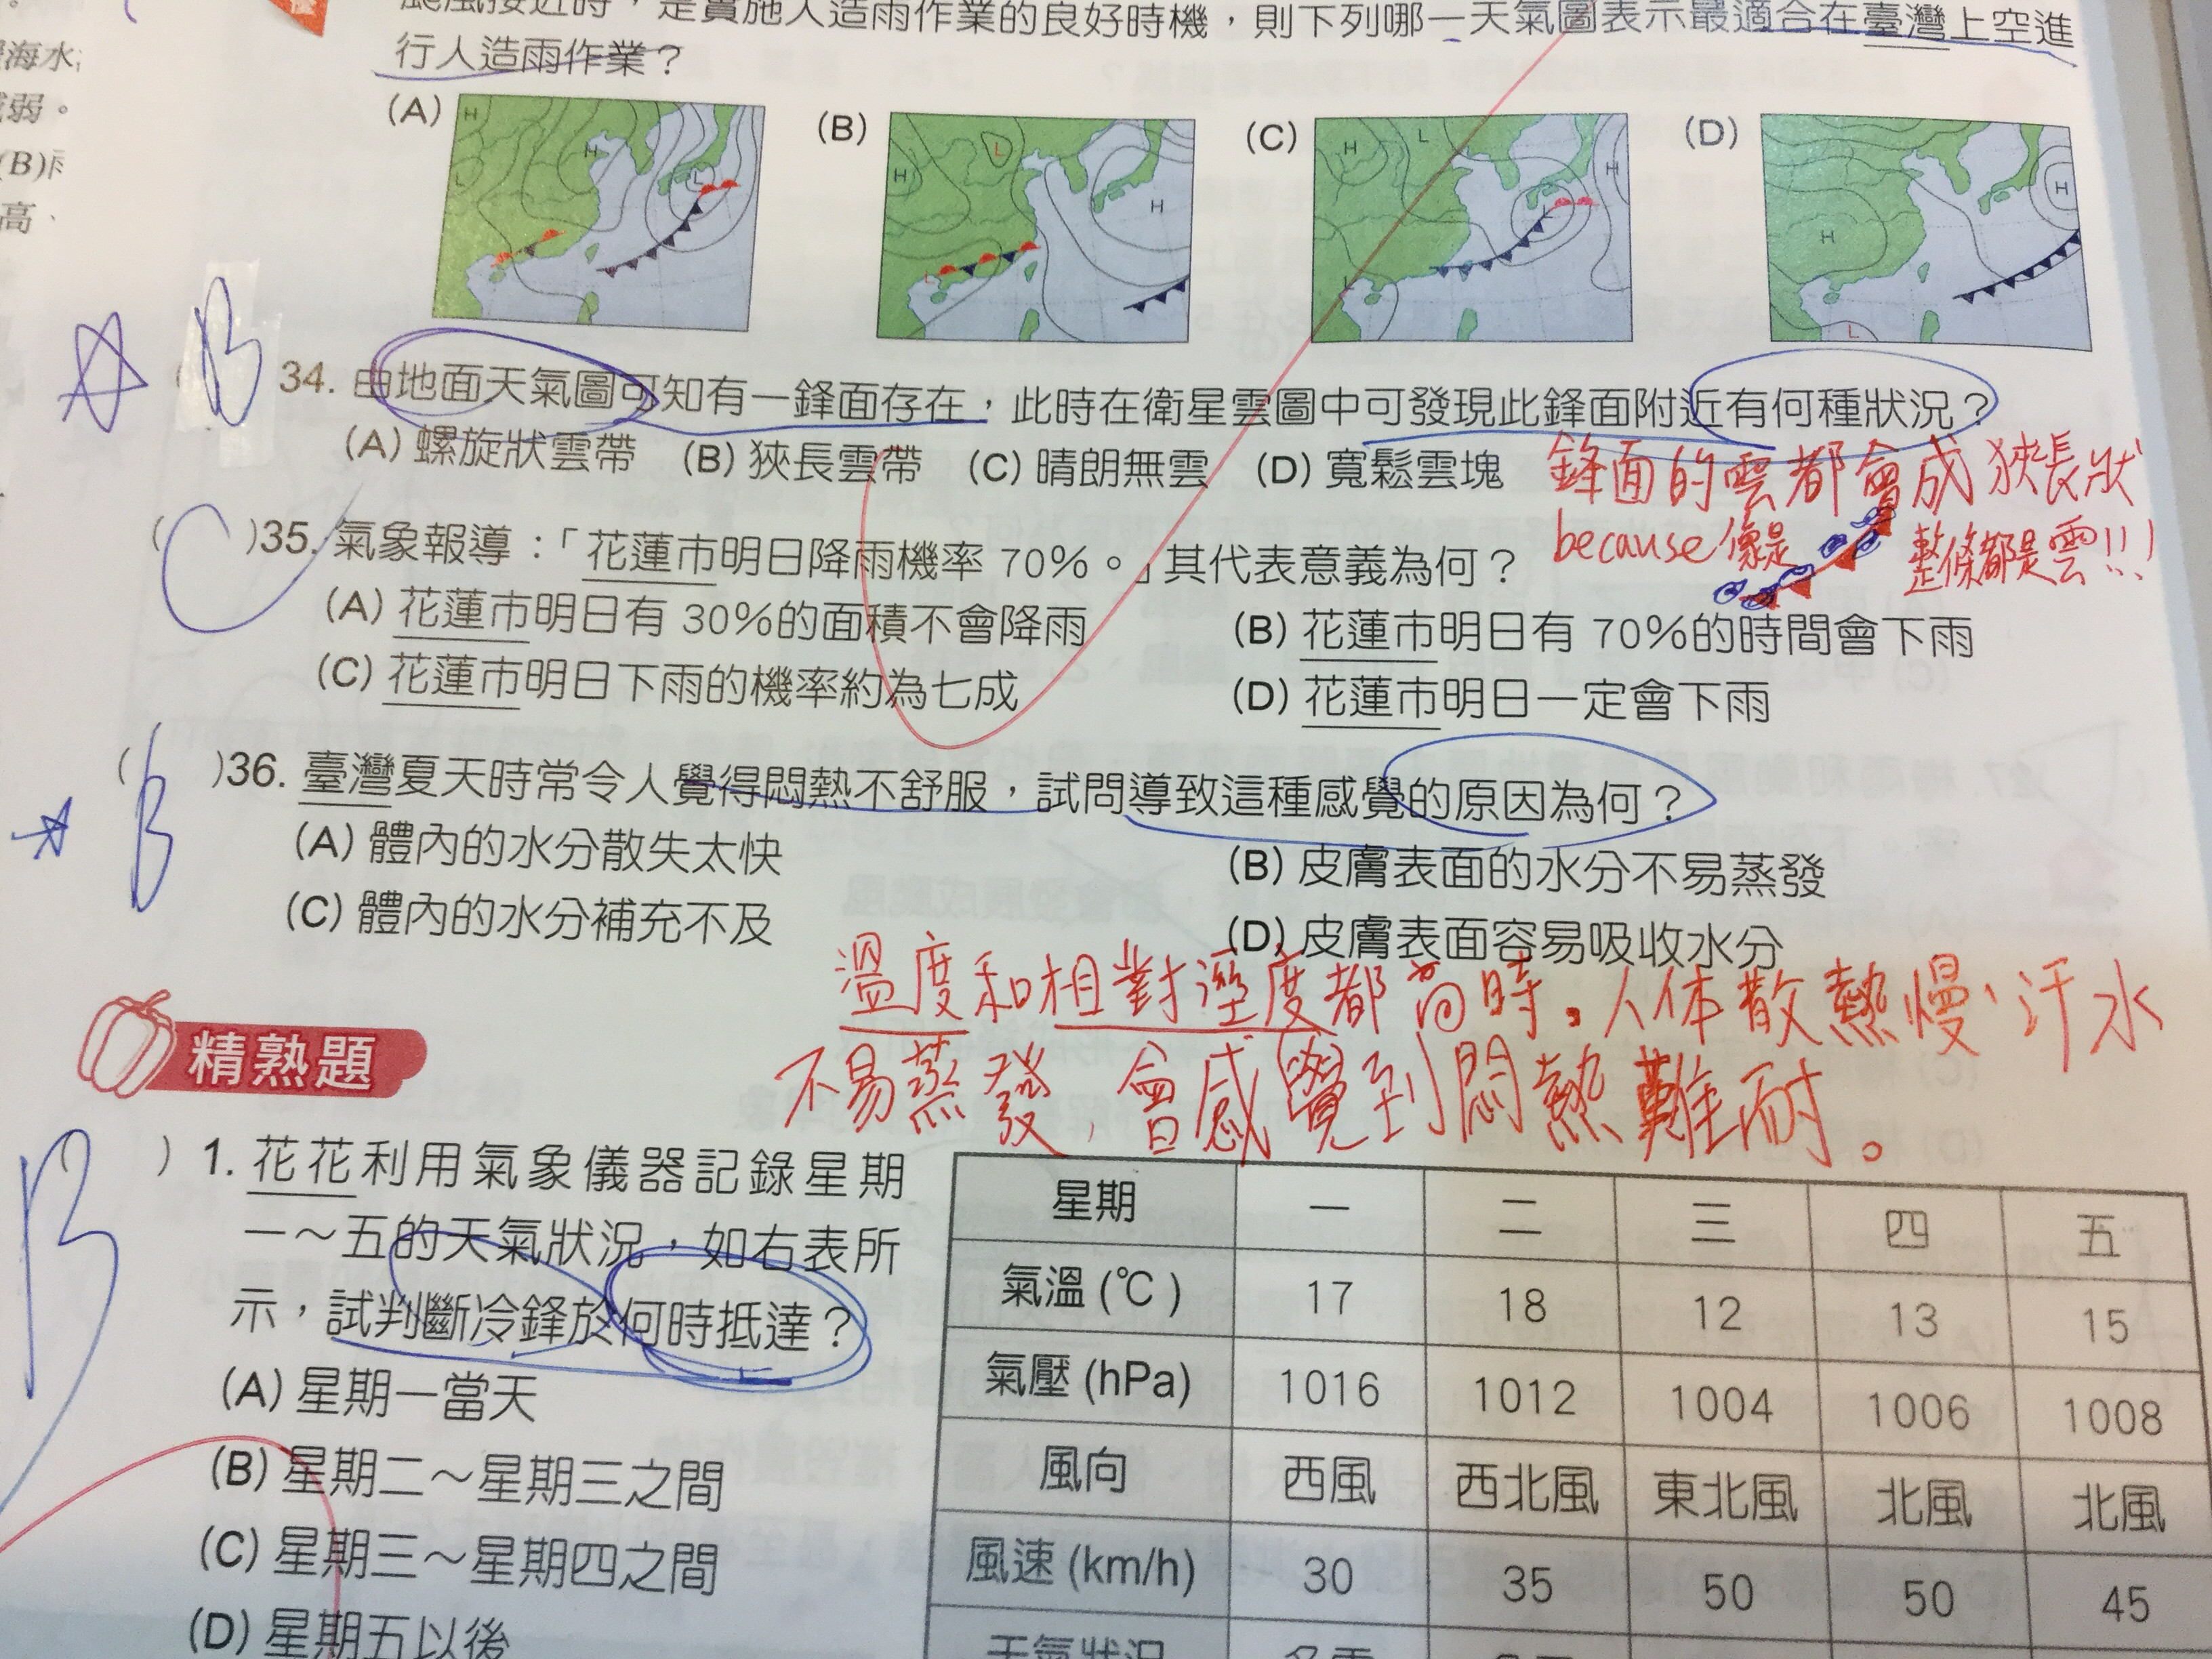 颱風接近時，是實施人造雨作業的良好時機，則下列哪一天氣圖表示最適合在臺灣上空進
行人造雨作業？
海水
弱。
(B)
高、
(A) (B) (C) (D)
H H L L
H L H
H L H L L
H H L
☆ B 34. 由地面天氣圖可知有一鋒面存在，此時在衛星雲圖中可發現此鋒面附近有何種狀況？
(A) 螺旋狀雲帶 (B) 狹長雲帶 (C) 晴朗無雲 (D) 寬鬆雲塊
鋒面的雲都會成狹長狀
because 像是 整條都是雲!!!
( C )35. 氣象報導：「花蓮市明日降雨機率 70%。」其代表意義為何？
(A) 花蓮市明日有 30%的面積不會降雨 (B) 花蓮市明日有 70%的時間會下雨
(C) 花蓮市明日下雨的機率約為七成 (D) 花蓮市明日一定會下雨
☆ ( B )36. 臺灣夏天時常令人覺得悶熱不舒服，試問導致這種感覺的原因為何？
(A) 體內的水分散失太快 (B) 皮膚表面的水分不易蒸發
(C) 體內的水分補充不及 (D) 皮膚表面容易吸收水分
溫度和相對溼度都高時。人体散熱慢、汗水
不易蒸發，會感覺到悶熱難耐。
精熟題
B ) 1. 花花利用氣象儀器記錄星期
一～五的天氣狀況，如右表所
示，試判斷冷鋒於何時抵達？
(A) 星期一當天
(B) 星期二～星期三之間
(C) 星期三～星期四之間
(D) 星期五以後
星期 一 二 三 四 五
氣溫 (℃) 17 18 12 13 15
氣壓 (hPa) 1016 1012 1004 1006 1008
風向 西風 西北風 東北風 北風 北風
風速 (km/h) 30 35 50 50 45
天氣狀況 多雲